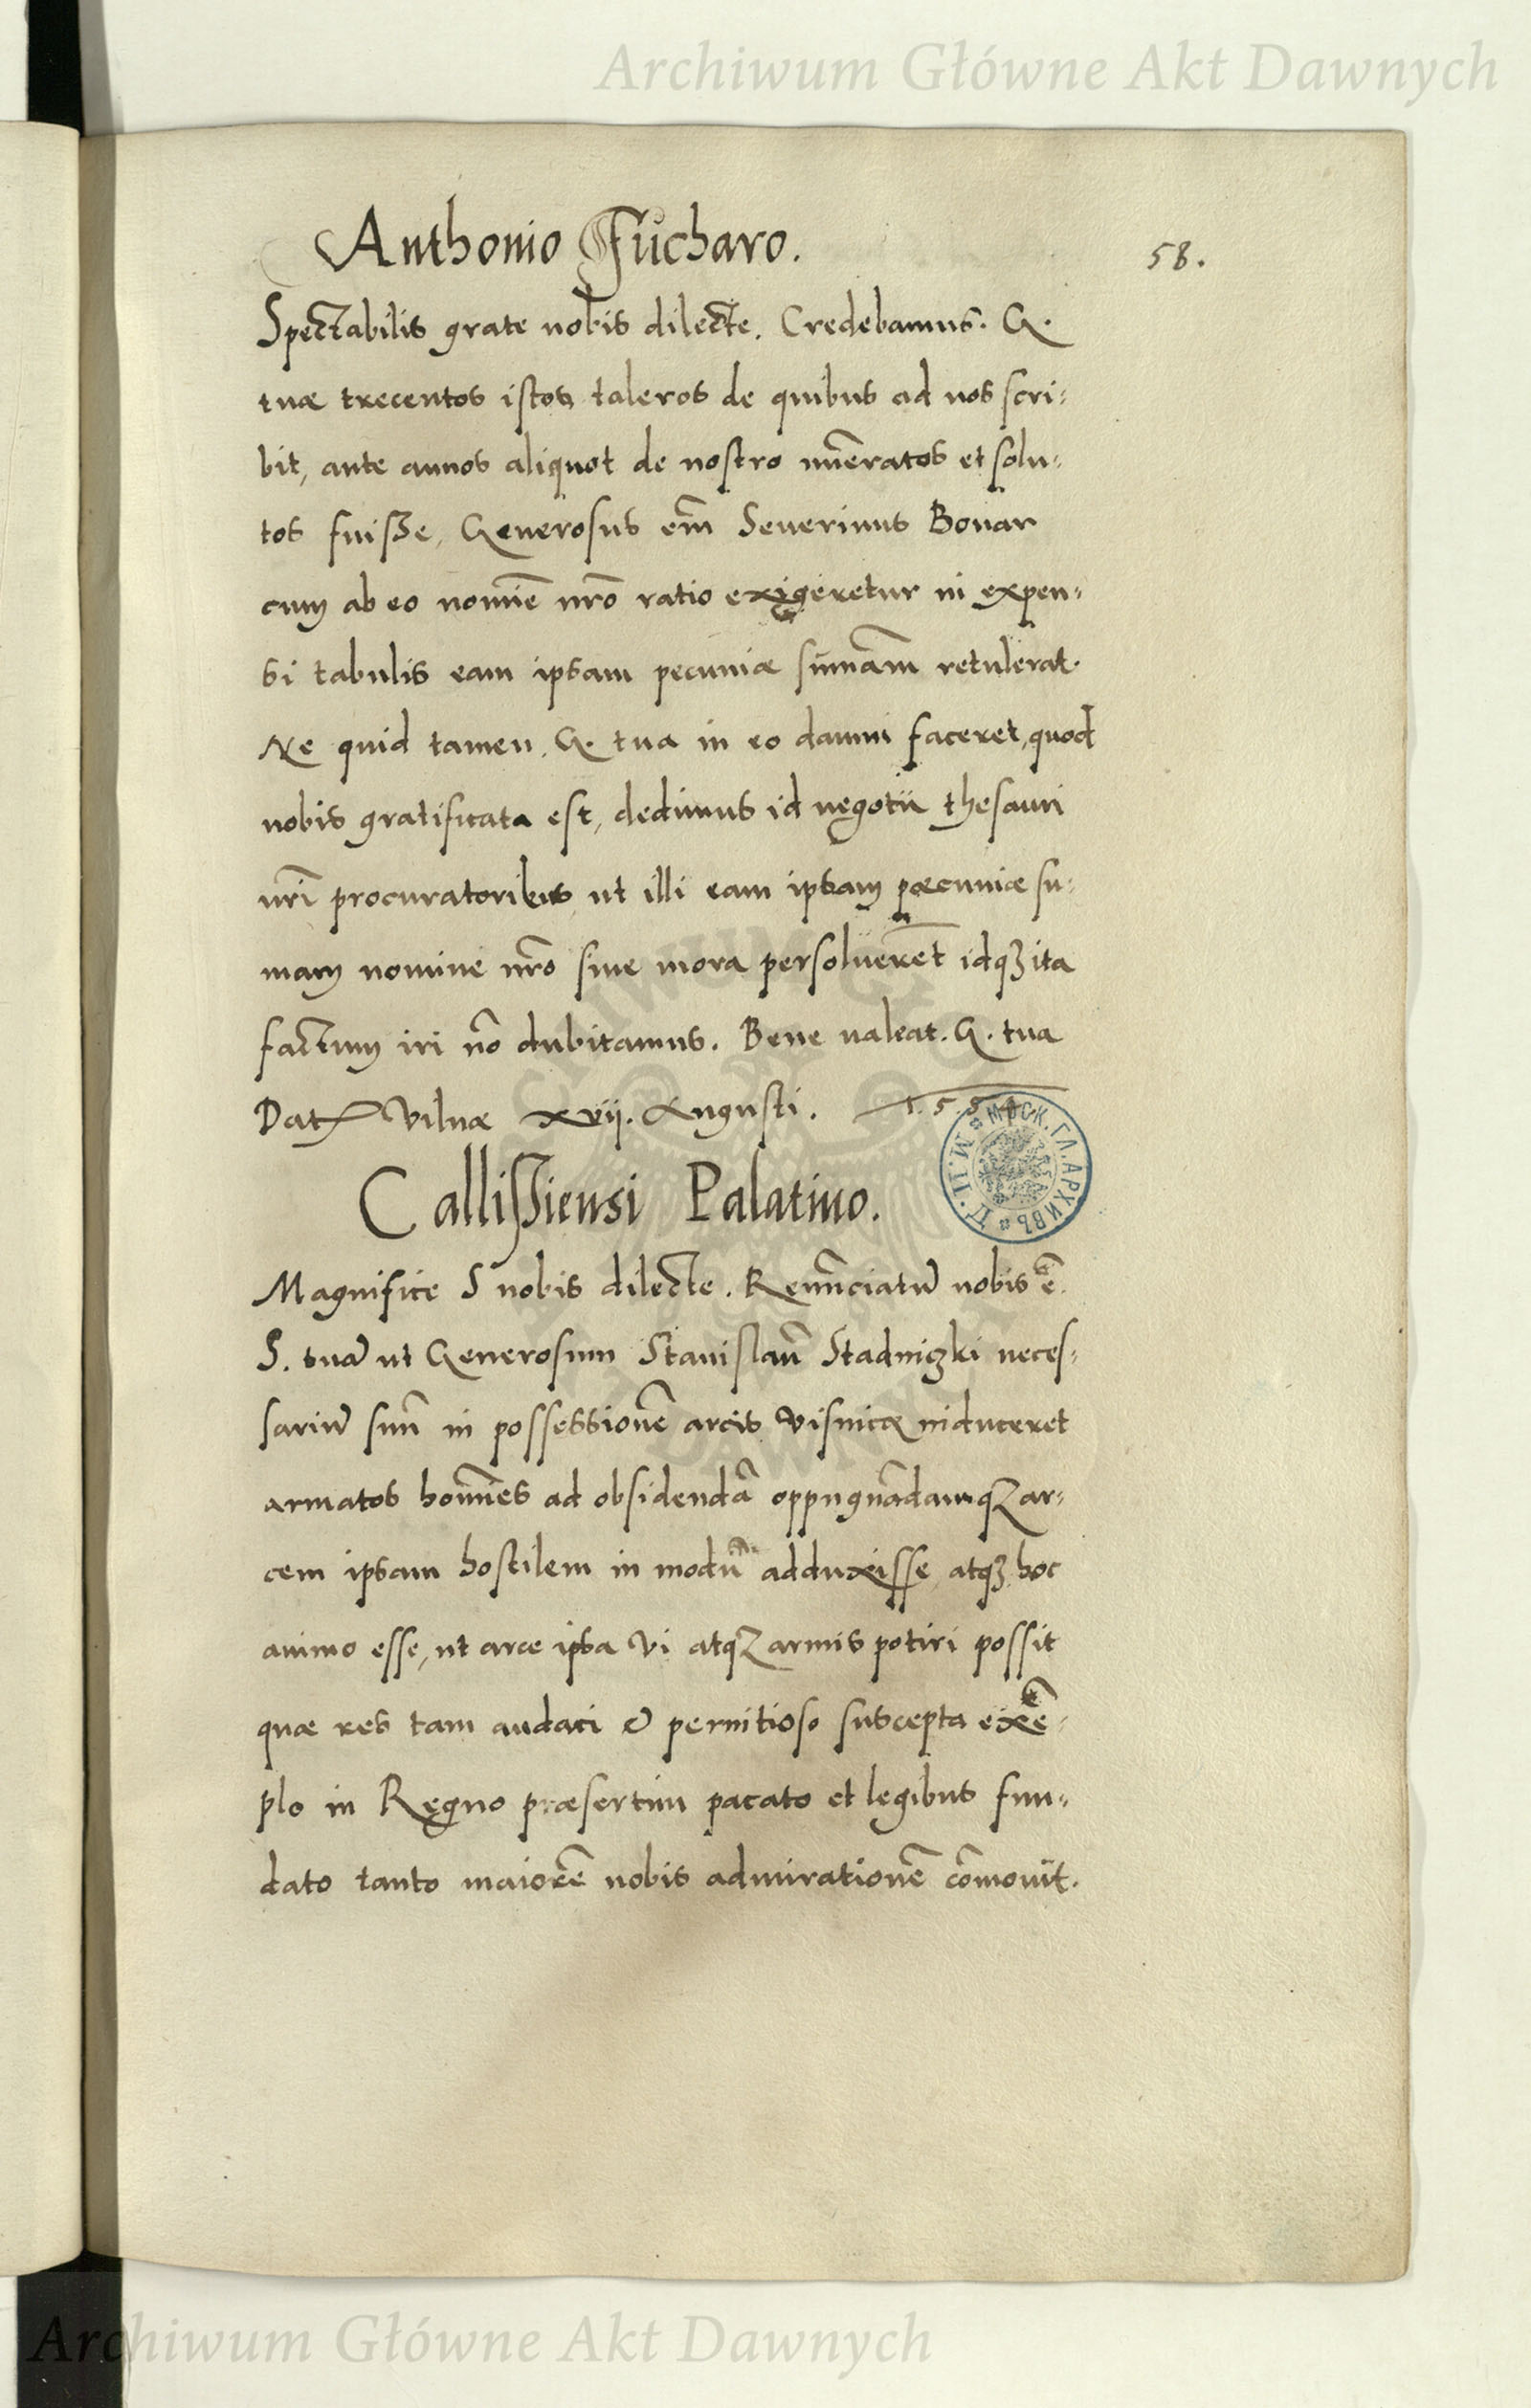 Archiwum Główne Akt Dawnych
Anthonio Fúcharo.
58.
Spectabilis grate nobis dilecte. Credebamus. G.
tuæ trecentos istos taleros de quibus ad nos scri-
bit, ante annos aliquot de nostro nūeratos et solu-
tos fuisse, Generosus em̄ Seuerinus Bonar
cum ab eo nomīe nr̄o ratio exigeretur in expen-
si tabulis eam ipsam pecuniæ sūmam retulerat.
Ne quid tamen. G. tua in eo damni faceret, quod
nobis gratificata est, dedimus id negotii thesauri
nr̄i procuratoribus ut illi eam ipsam pæcuniæ su-
mam nomine nr̄o sine mora persoluerēt idqꝫ ita
factum iri nō dubitamus. Bene ualeat. G. tua
Dat Vilnæ xvii. Augusti. 1.5.5
Callissiensi Palatino.
МОСК. ГЛ. АРХИВЪ
Magnifice S nobis dilecte. Renūciatū nobis ē
S. tuā ut Generosum Stanislaū Stadniczki neces-
sariū suū in possessionē arcis Visnicæ induceret
armatos homīes ad obsidendā oppugnādamqꝫ ar-
cem ipsam hostilem in modū adduxisse, atqꝫ hoc
animo esse, ut arce ipsa vi atqꝫ armis potiri possit
quæ res tam audaci & pernitioso suscepta exē-
plo in Regno præsertim pacato et legibus fun-
dato tanto maiorē nobis admirationē cōmouit.
Archiwum Główne Akt Dawnych